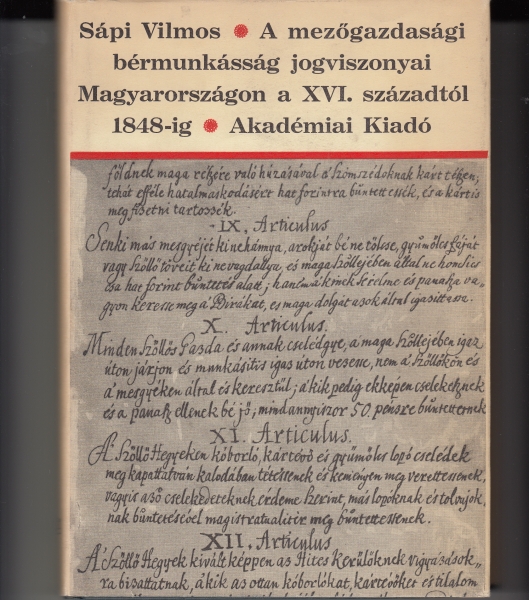 Sápi Vilmos • A mezőgazdasági
bérmunkásság jogviszonyai
Magyarországon a XVI. századtól
1848-ig • Akadémiai Kiadó
földnek maga részére való húzásával a' Szomszédoknak kárt tészen,
tehát efféle hatalmaskodásért hat forintra büntettessék, és a kárt is
meg fizetni tartozzék.
IX, Articulus
Senki más mesgyéjét ki ne hánnya, árokját bé ne töltse, gyümölcs fáját
vagy Szöllő töveit ki ne vagdallya, és maga Szöllejében által ne
hat forint büntetés alatt; hanem a' kinek sérelme és panasza va-
gyon keresse meg a' Birákat, és maga dolgát azok által igazittassa.
X. Articulus.
Minden Szöllős Gazda és annak cselédgye, a maga Szöllejében igaz
úton járjon és munkásit is igaz úton vezesse, nem a' Szöllőkön és
a' mesgyéken által és keresztül; a' kik pedig ekképen cselekesznek
és a panasz ellenek bé jő, mind annyiszor 50. pénzre büntettetnek
XI. Articulus.
A' Szöllő Hegyeken kóborló, kártévő és gyümölcs lopó cselédek
meg kapattatván kalodában tétessenek és keményen meg verettessenek,
vagyis a' ző cselekedeteknek érdeme szerint, más lopóknak és tolvajok-
nak büntetésével magistratualiter meg büntettessenek.
XII, Articulus
A' Szöllő Hegyek kivált képpen az Hites Kerülőknek vigyázások-
ra bizattatnak, a' kik az ottan kóborlókat, kártevőket és tilalom